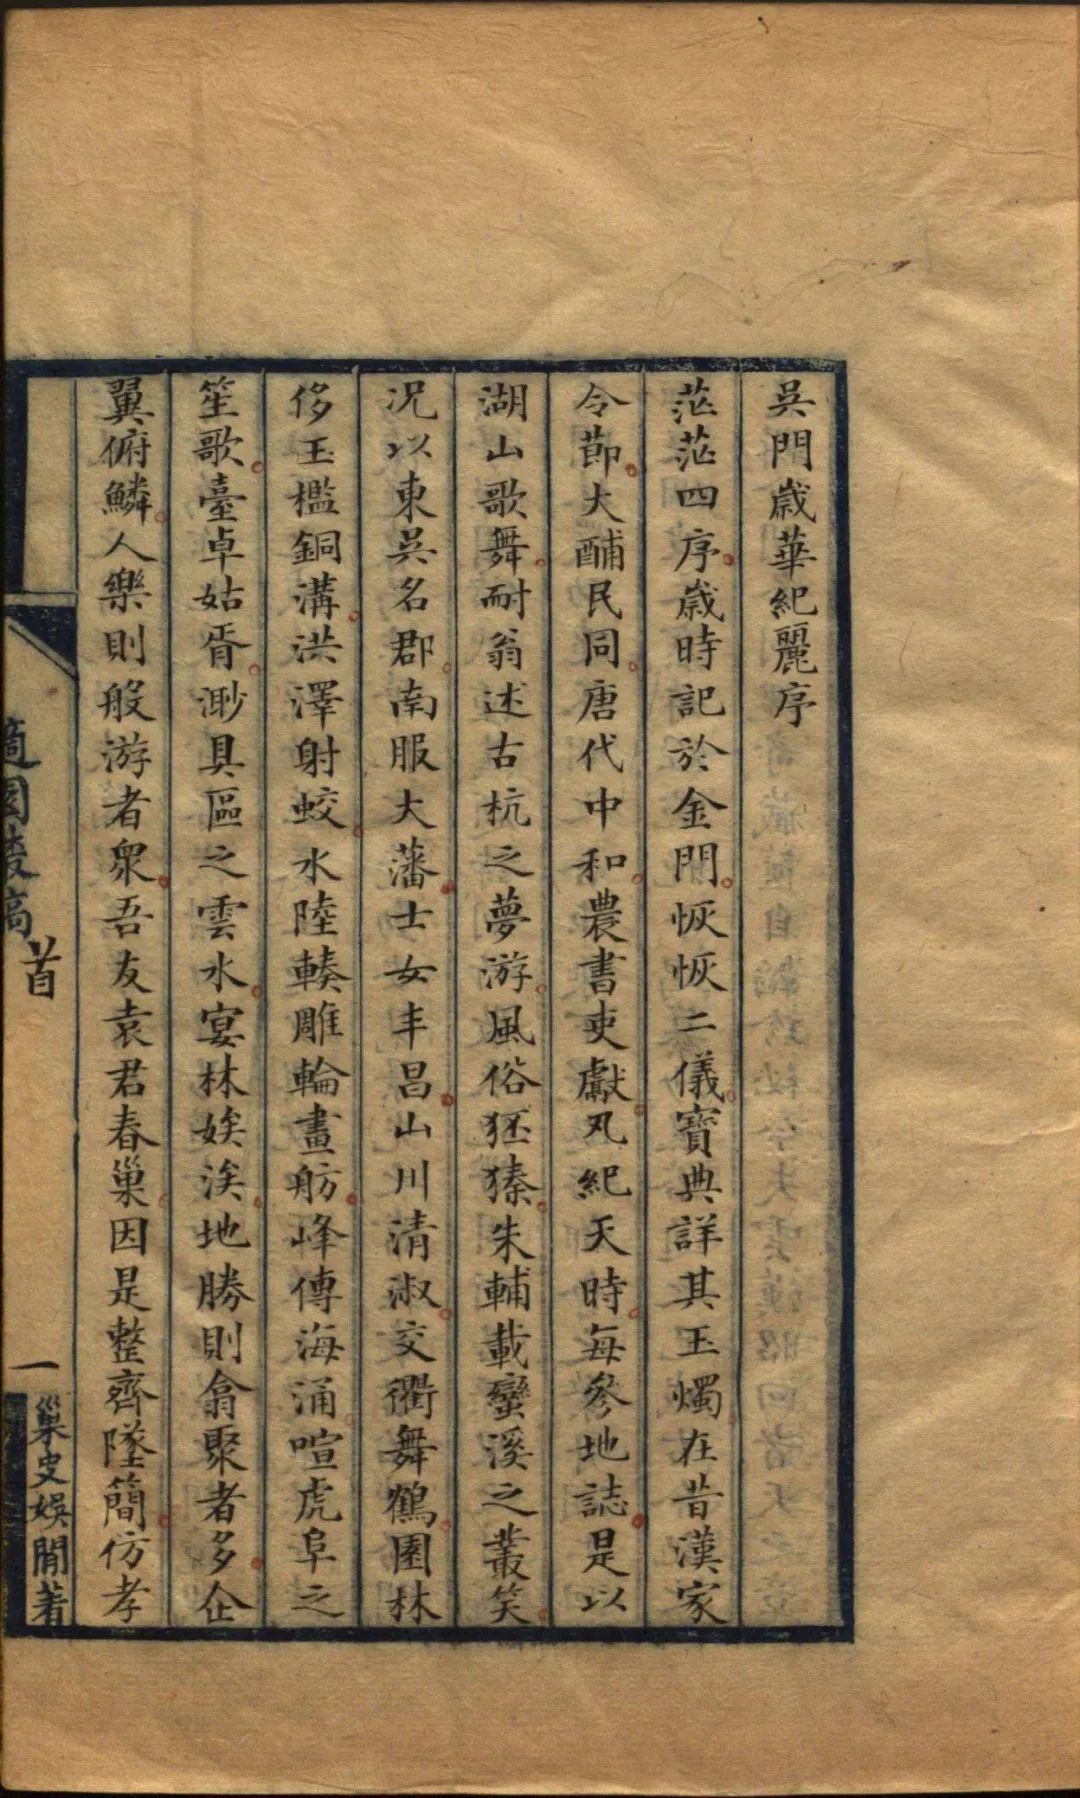 吳門歲華紀麗序
茫茫四序歲時記於金門恢恢二儀寶典詳其玉燭在昔漢家
令節大酺民同唐代中和農書吏獻凡紀天時每參地誌是以
湖山歌舞耐翁述古杭之夢游風俗狉獉朱輔載蠻溪之叢笑
況以東吳名郡南服大藩士女丰昌山川清淑交衢舞鶴園林
侈玉檻銅溝洪澤射蛟水陸輳雕輪畫舫峰傳海涌喧虎阜之
笙歌臺卓姑胥渺具區之雲水宴林娭涘地勝則翕聚者多企
翼俯鱗人樂則般游者衆吾友袁君春巢因是整齊墜簡仿孝
適園叢稿
首
一
巢史娛閒著